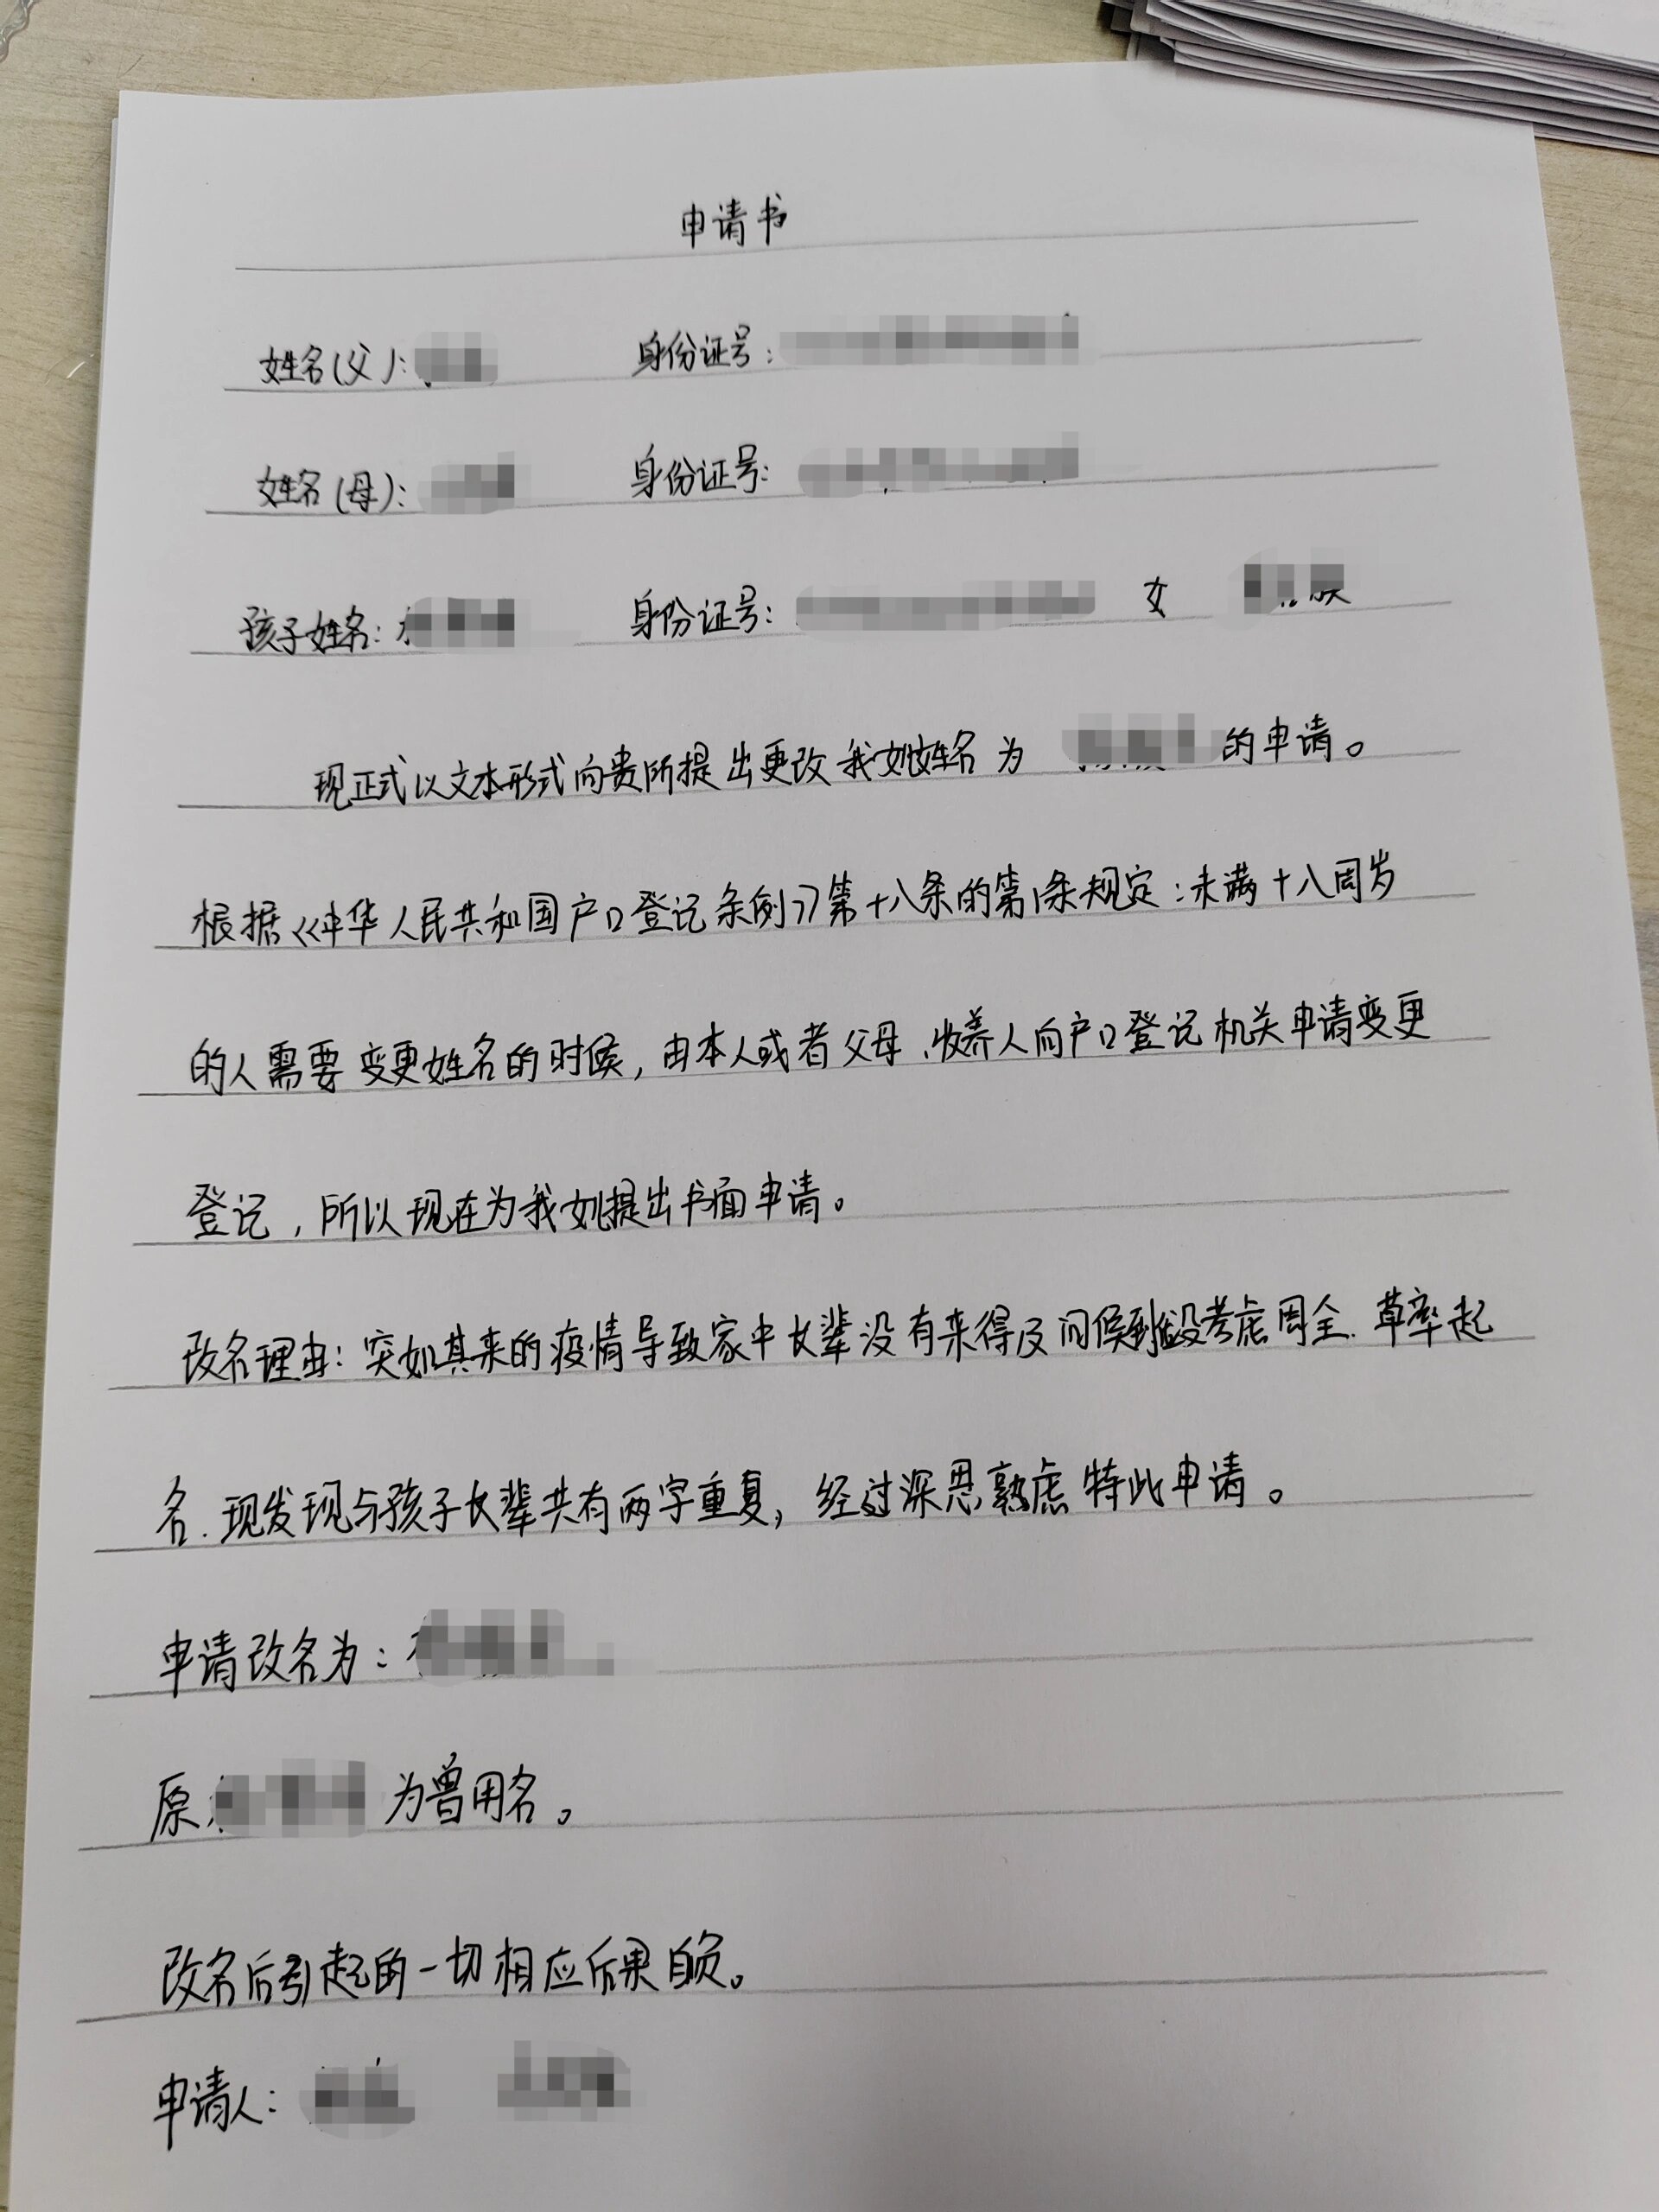 申请书
姓名(父): 身份证号:
姓名(母): 身份证号:
孩子姓名: 身份证号: 女 族
现正式以文本形式向贵所提出更改我女姓名为 的申请。
根据《中华人民共和国户口登记条例》第十八条的第1条规定:未满十八周岁
的人需要变更姓名的时候,由本人或者父母、收养人向户口登记机关申请变更
登记,所以现在为我女儿提出书面申请。
改名理由:突如其来的疫情导致家中长辈没有来得及问候到没考虑周全.草率起
名.现发现与孩子长辈共有两字重复,经过深思熟虑特此申请。
申请改名为:
原 为曾用名。
改名后引起的一切相应后果自负。
申请人: